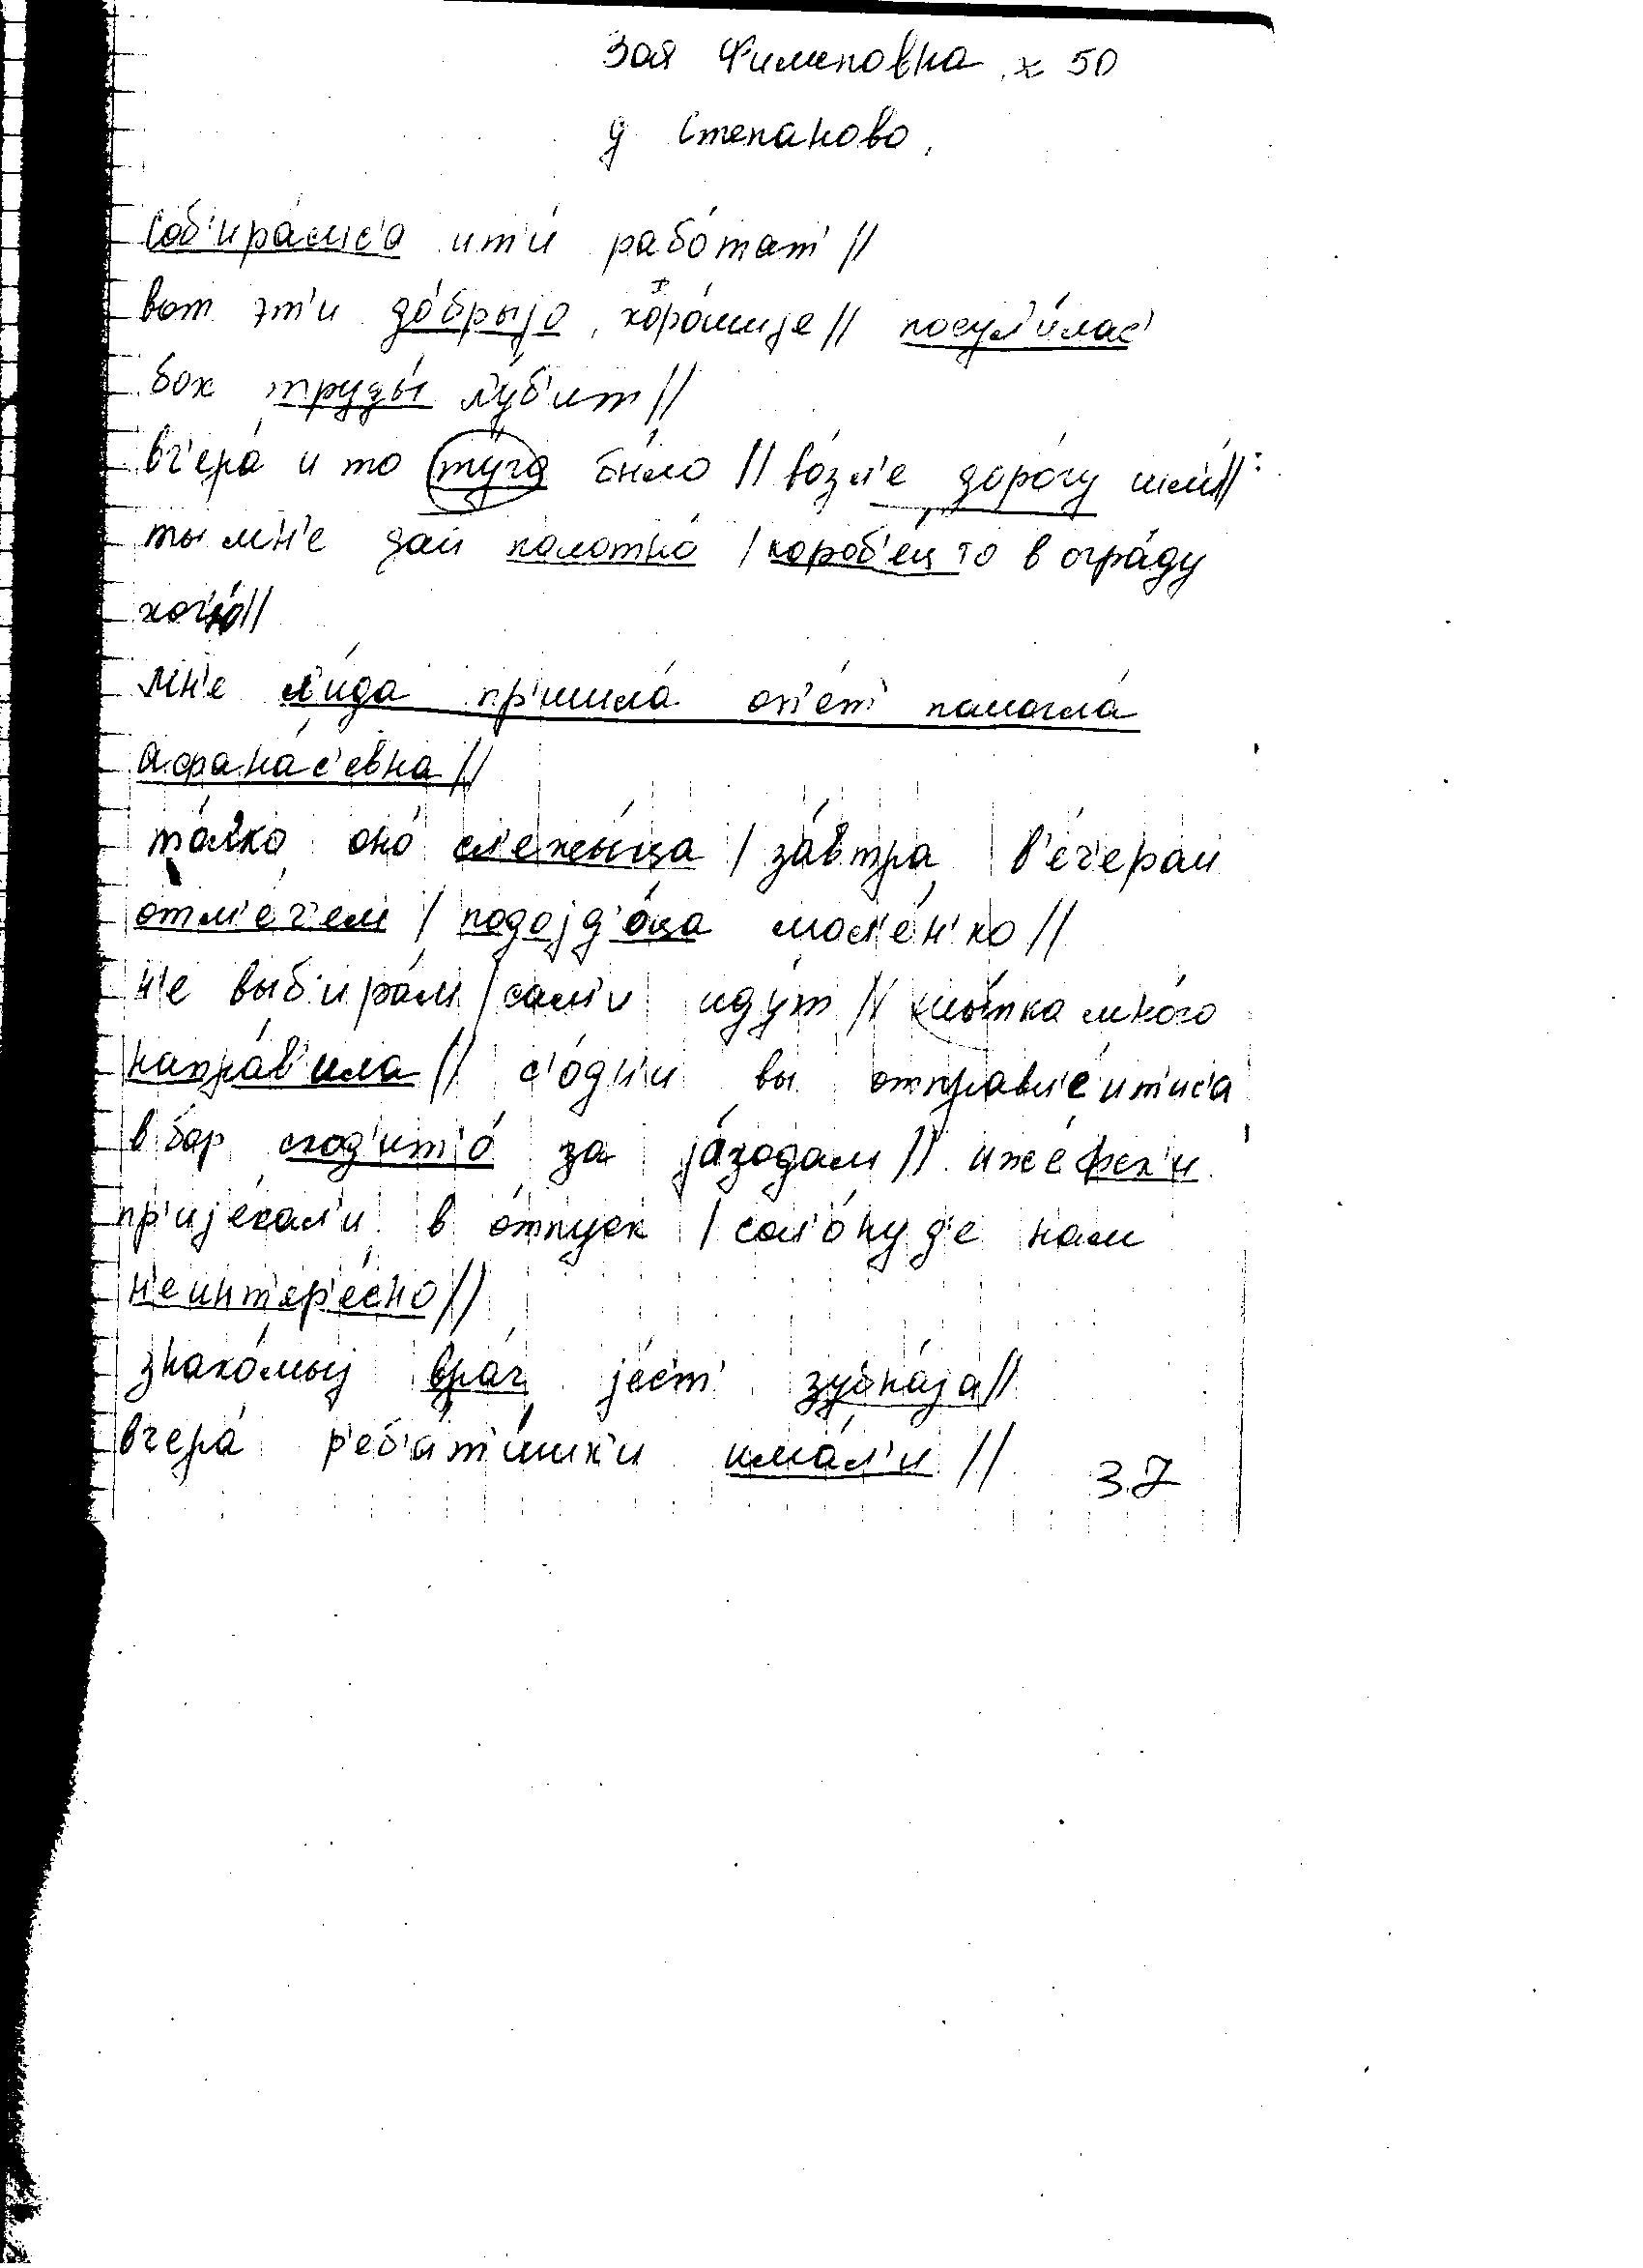 Зоя Филиповна х 50
д Степаново.
соб'ира́лис'а ит'и́ рабо́тат' //
вот эт'и до́брыjо, хоро́шиjе // посул'и́лас'
бох труды́ л'у́б'ит //
вч'ера́ и то ту́го бы́ло // во́зл'е доро́гу шл'и́ //
ты мн'е дай полотно́ / короб'е́ц то в огра́ду
хоч'у́ //
мн'е л'и́да пр'ишла́ оп'е́т' помогла́
афана́с'евна //
то́л'ко оно́ сл'ежы́ца / за́втра в'е́ч'ером
отм'е́ч'ем / подоjд'о́ца мал'е́н'ко //
н'е выб'ира́м / са́м'и иду́т // мно́го
напра́в'ила // с'о́дн'и вы отправл'е́ит'ис'а
в бор сход'ит'о́ за jа́годам // иже́фск'и
пр'иjе́хал'и в о́тпуск / нам
н'еинт'ер'е́сно //
знако́мыj врач' jес'т' зубна́jа //
вчера́ р'еб'ат'и́шк'и има́л'и // 37